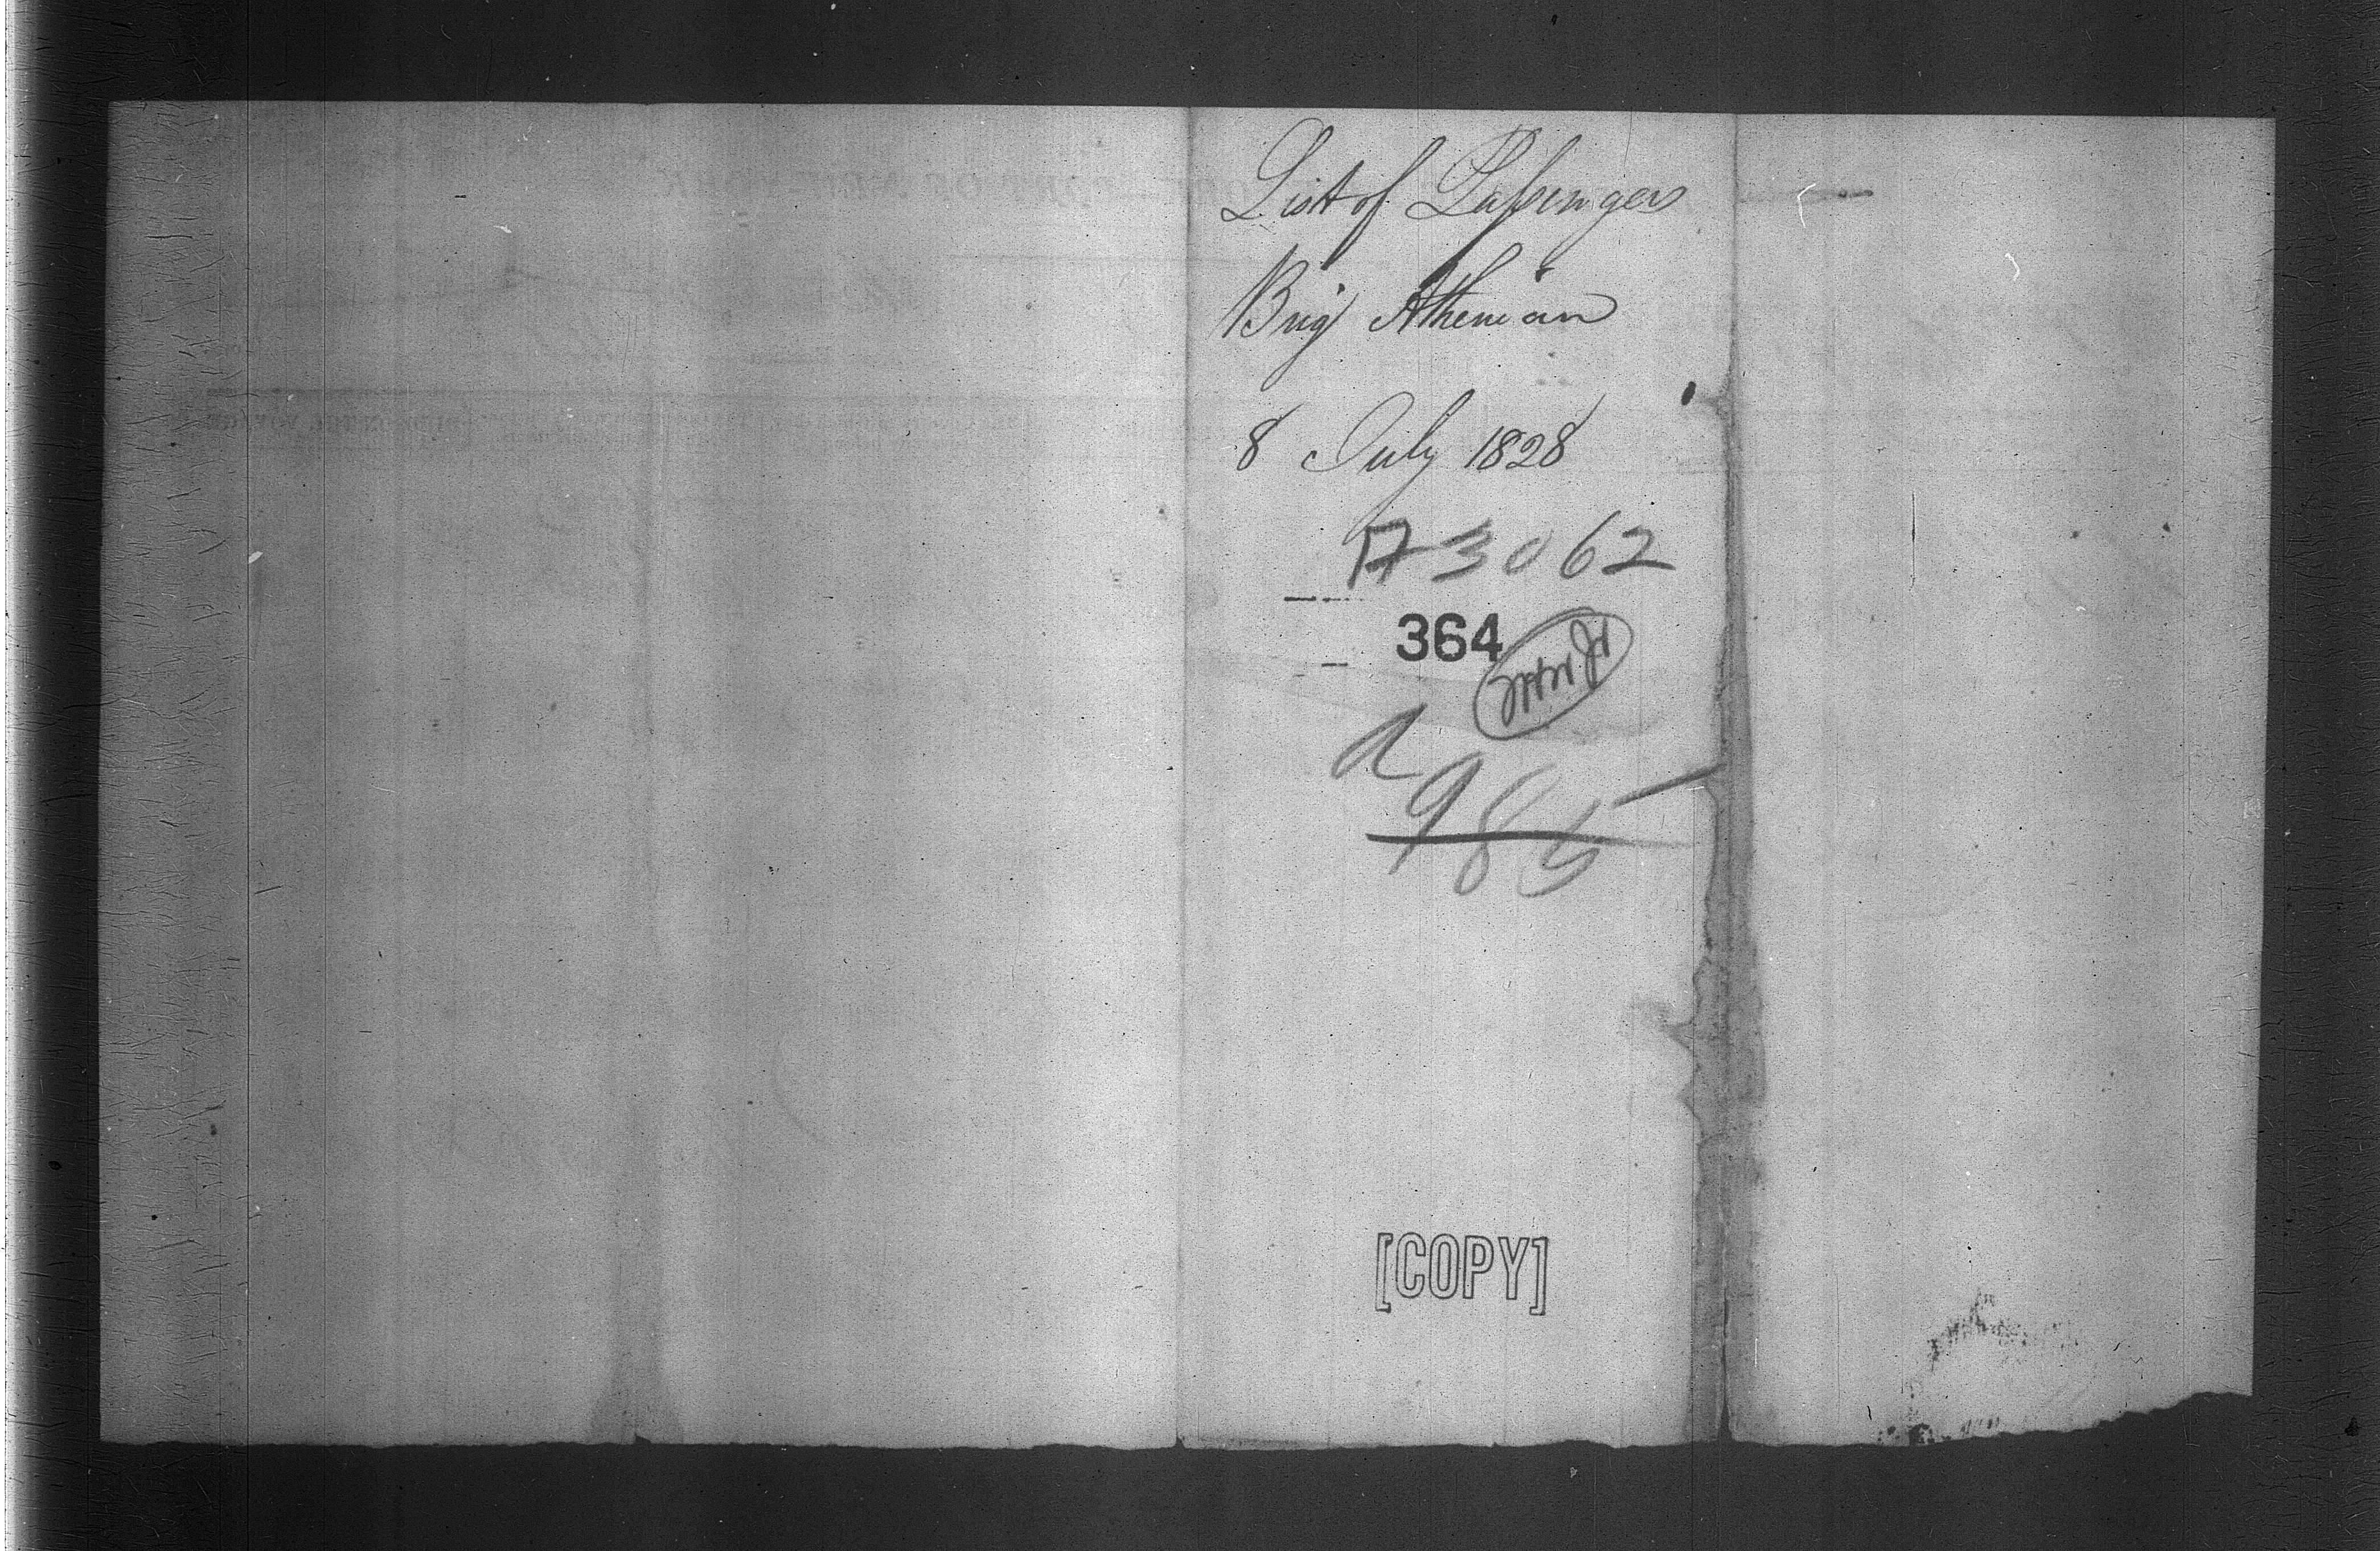 List of Passengers
Brig Athenian
8 July 1828
A3062
364
a
985
[COPY]